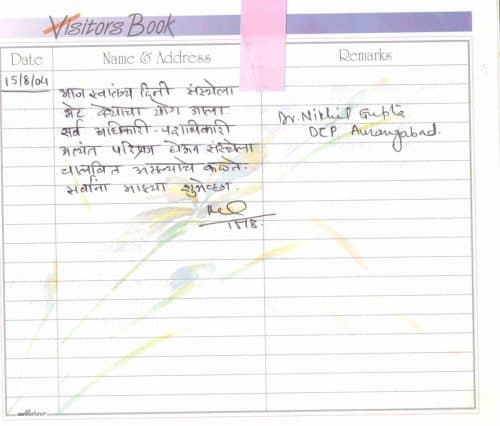 Visitors Book
Date
Name & Address
Remarks
15/8/04
आज स्वातंत्र्य दिनी संस्थेला
भेट देण्याचा योग आला.
सर्व अधिकारी-पदाधिकारी
अत्यंत परिश्रम घेऊन संस्थेला
चालवित असल्याचे कळते.
सर्वांना माझ्या शुभेच्छा.
15/8.
Dr. Nikhil Gupta
DCP Aurangabad.